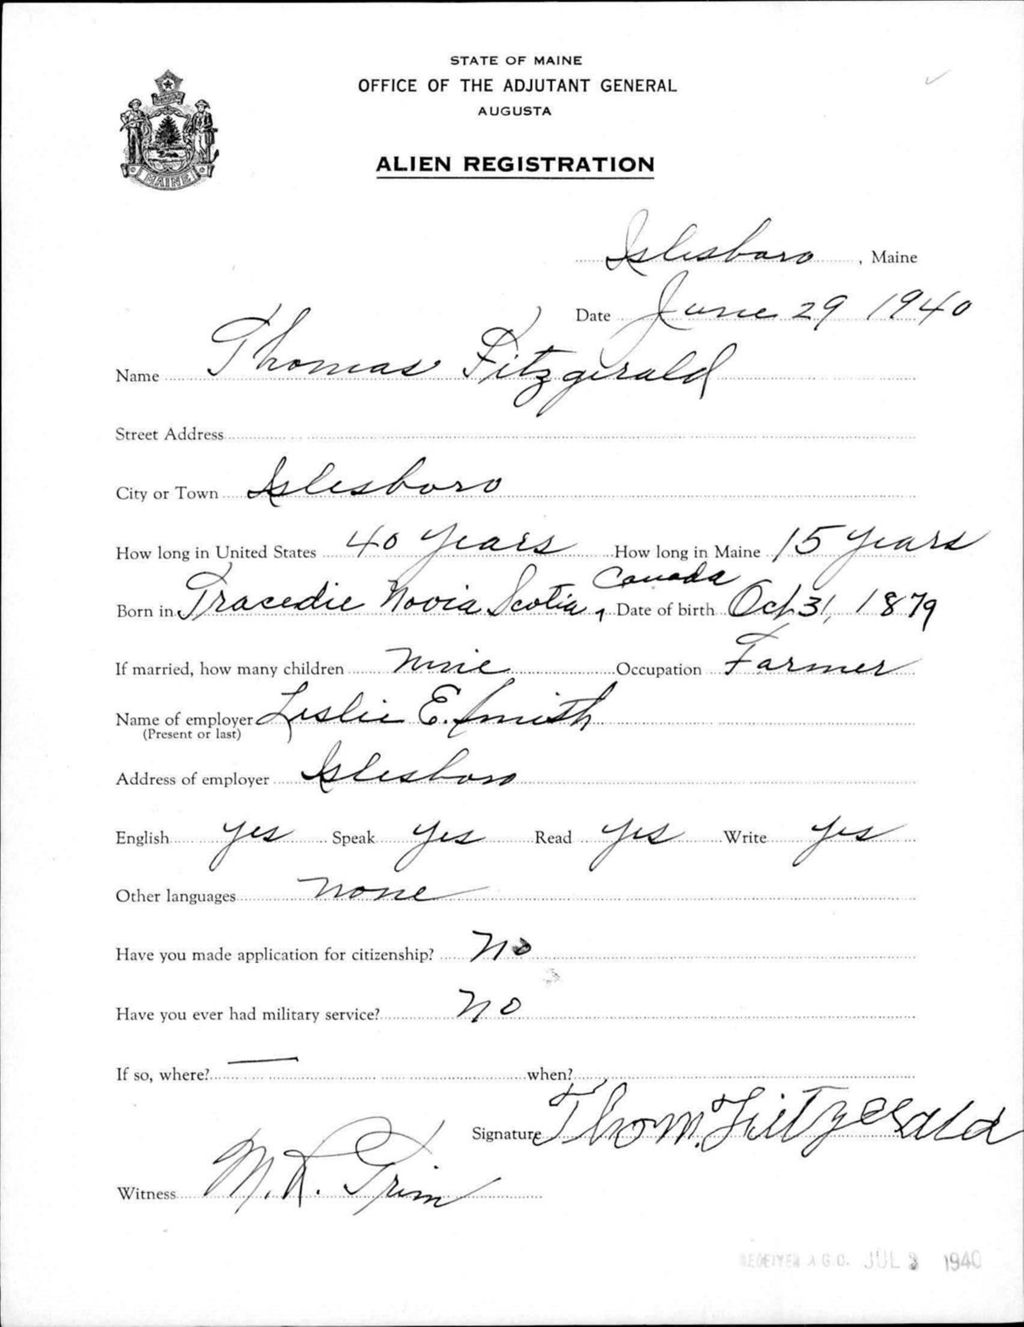 STATE OF MAINE
OFFICE OF THE ADJUTANT GENERAL
AUGUSTA
ALIEN REGISTRATION
MAINE
Islesboro, Maine
Date June 29 1940
Name Thomas Fitzgerald
Street Address
City or Town Islesboro
How long in United States 40 years How long in Maine 15 years
Canada
Born in Tracedie Novia Scotia, Date of birth Oct 31, 1879
If married, how many children nine Occupation Farmer
Name of employer Leslie E. Smith
(Present or last)
Address of employer Islesboro
English yes Speak yes Read yes Write yes
Other languages none
Have you made application for citizenship? No
Have you ever had military service? No
If so, where? — when?
Signature Thom. Fitzgerald
Witness M. R. Trim
RECEIVED A.G.O. JUL 1940